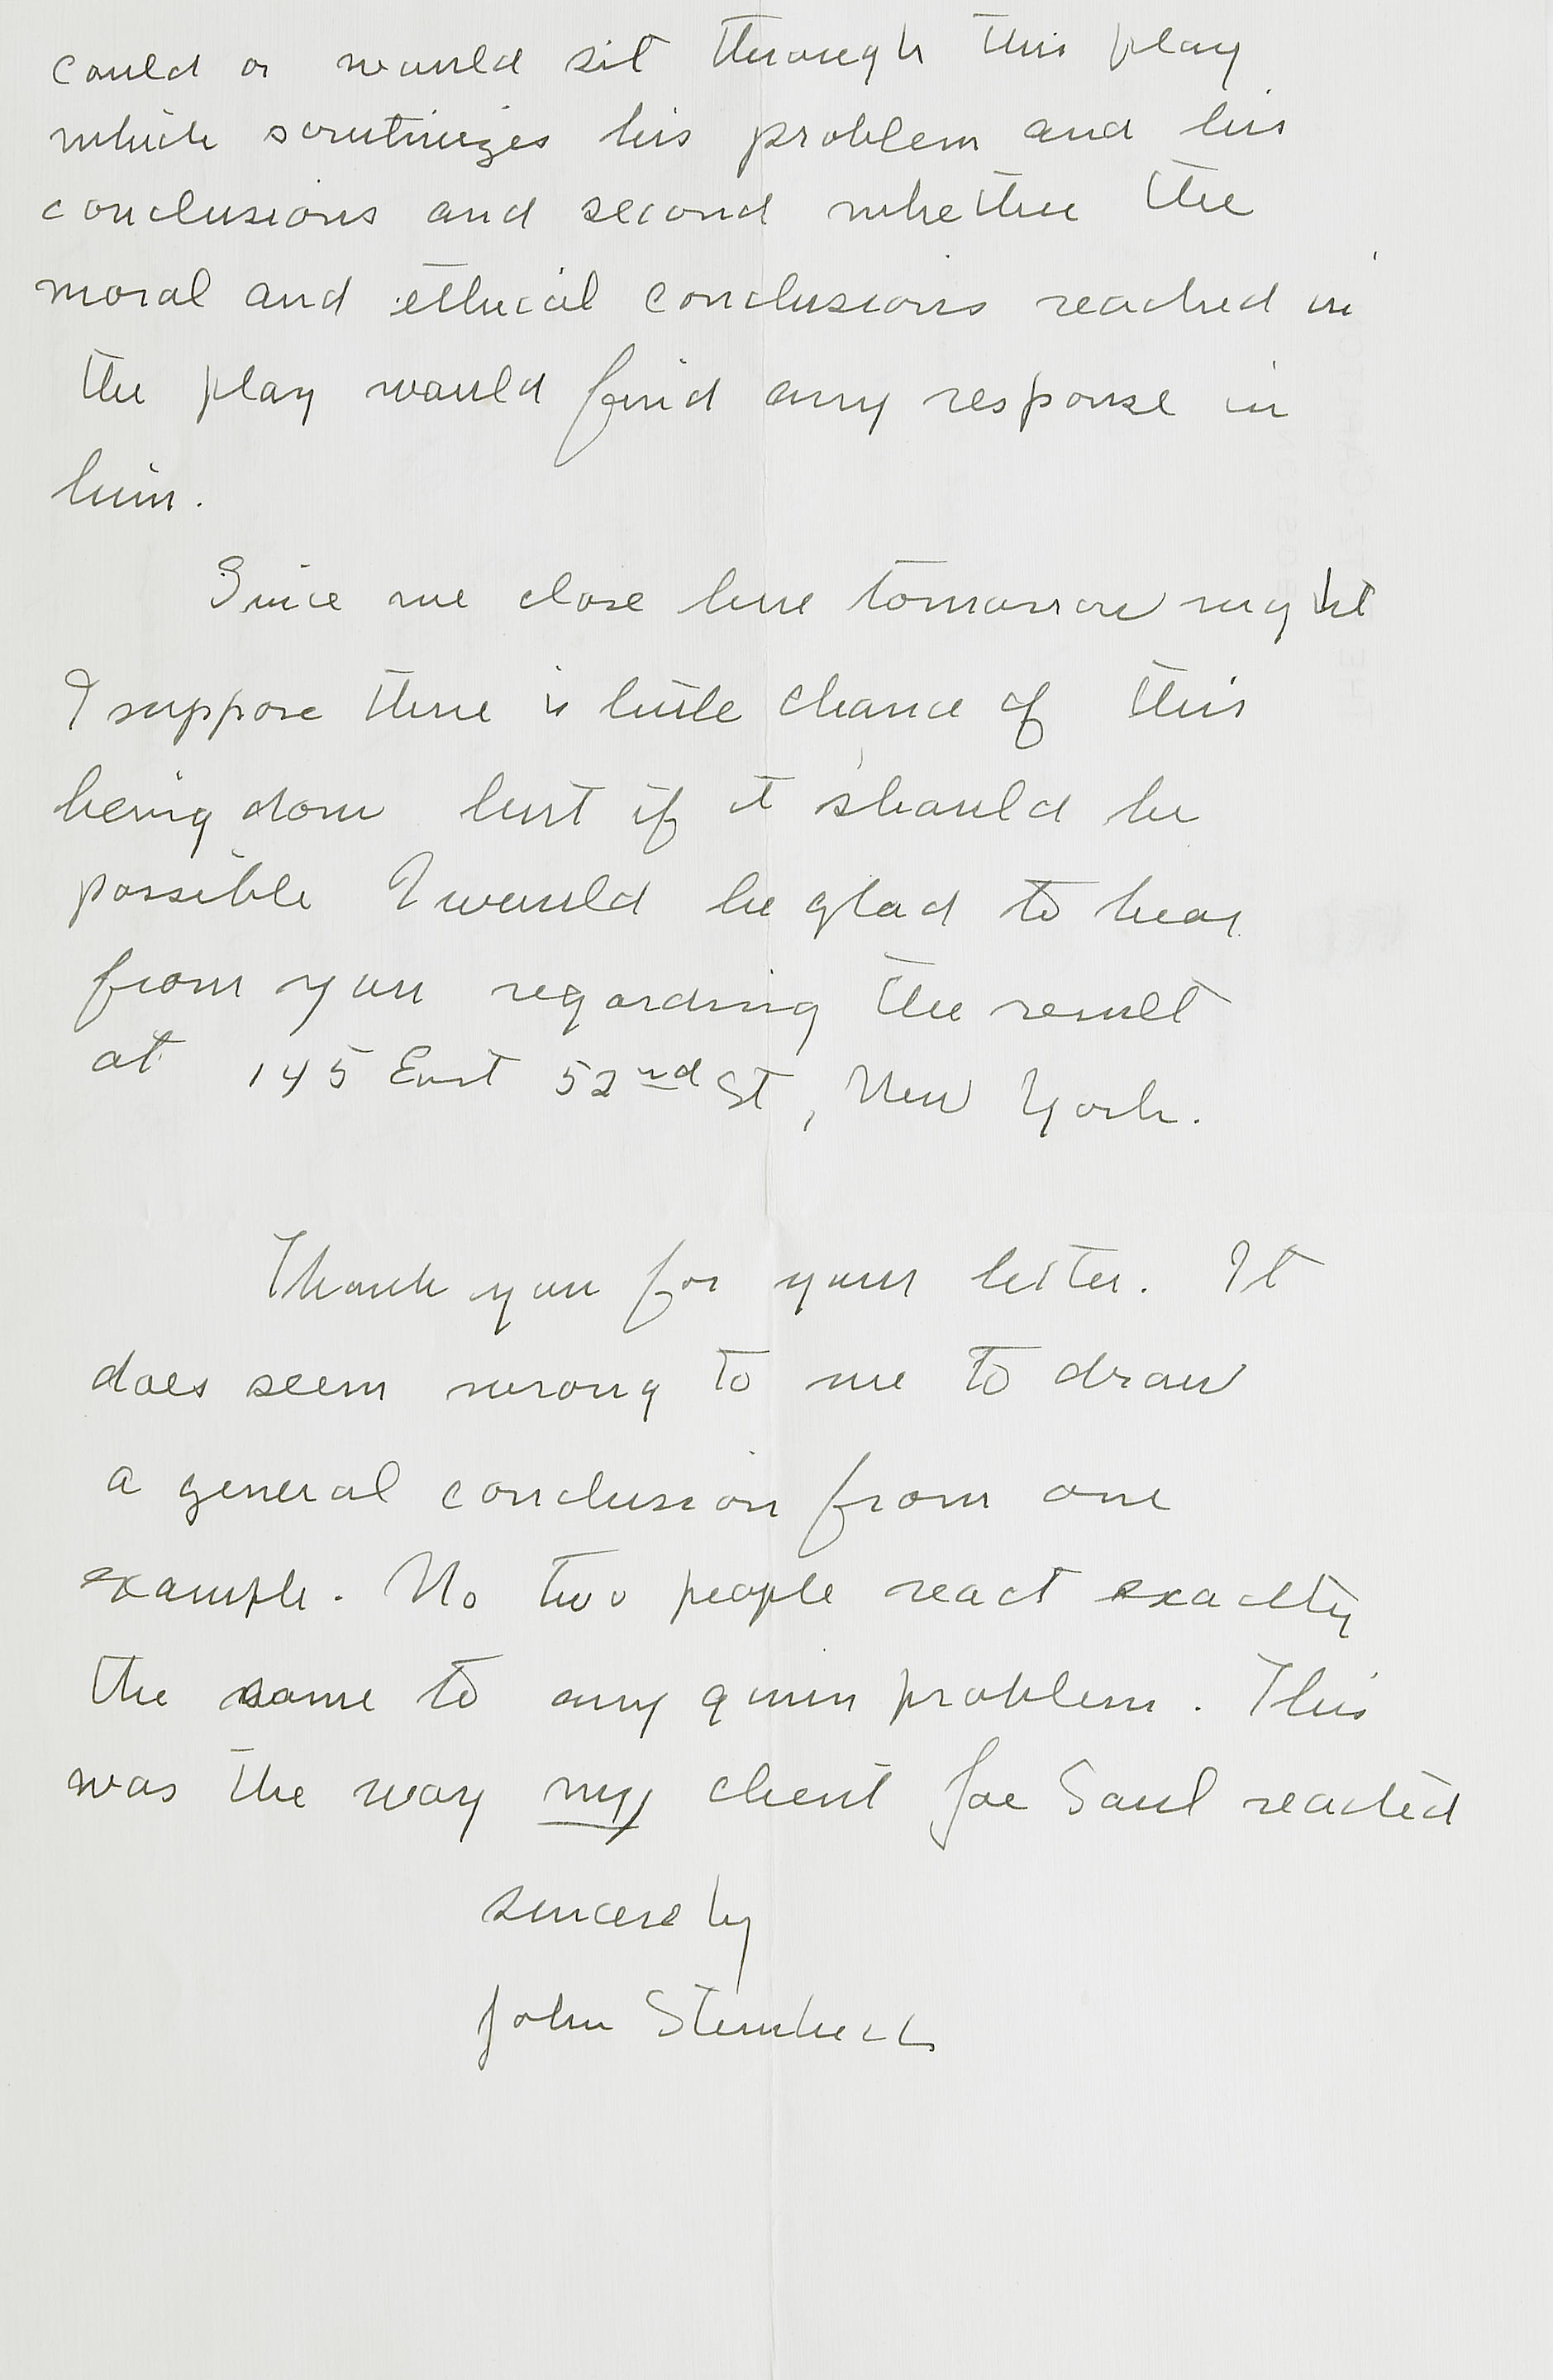 could or would sit through this play
which scrutinizes his problem and his
conclusions and second whether the
moral and ethical conclusions reached in
the play would find any response in
him.
Since we close here tomorrow night
I suppose there is little chance of this
being done but if it should be
possible I would be glad to hear
from you regarding the result
at 145 East 52nd St, New York.
Thank you for your letter. It
does seem wrong to me to draw
a general conclusion from one
example. No two people react exactly
the same to any given problem. This
was the way my client Joe Saul reacted
sincerely
John Steinbeck